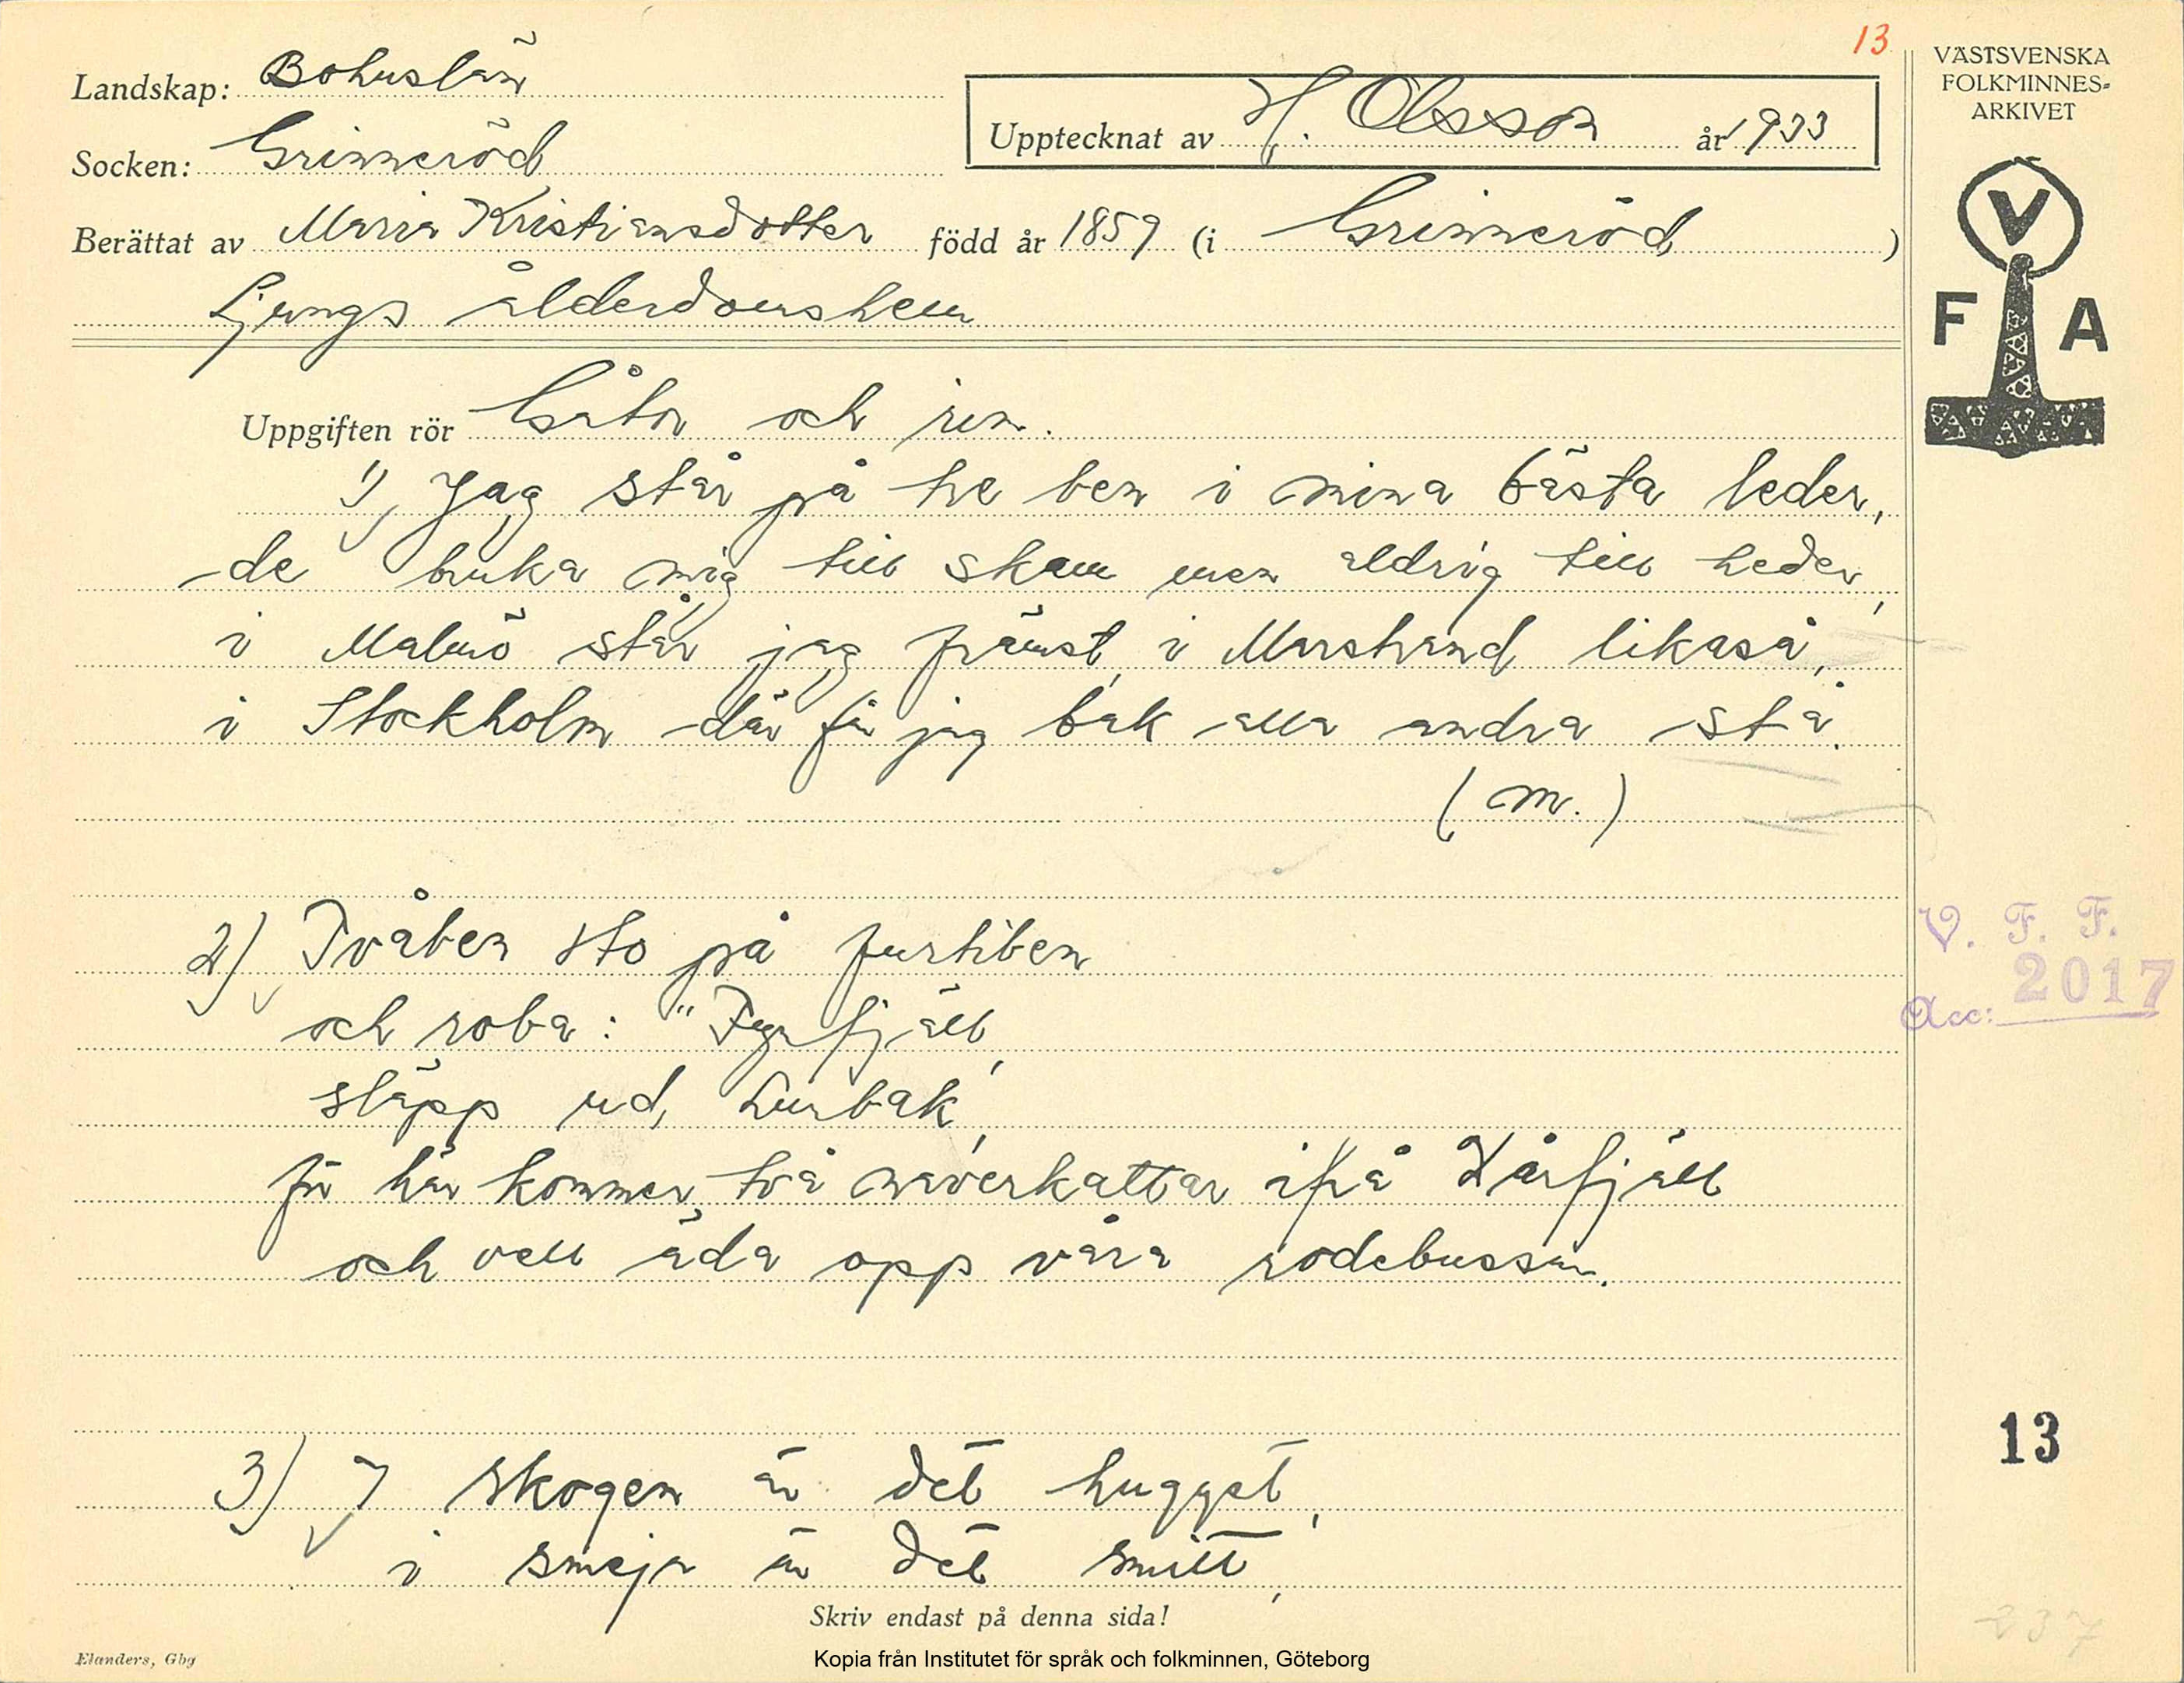 13
Landskap: Bohuslän
Upptecknat av H. Olsson år 1933
Socken: Grinneröd
Berättat av Maria Kristiansdotter född år 1859 (i Grinneröd)
Ljungs ålderdomshem
VÄSTSVENSKA
FOLKMINNES-
ARKIVET
V
F A
Uppgiften rör Gåtor och rim.
1) Jag står på tre ben i mina bästa leder,
de bruka mig till skam men aldrig till heder,
i Malmö står jag främst, i Marstrand likaså,
i Stockholm där får jag bak alla andra stå.
(m.)
2) Tvåben sto på furtiben
och roba: "Fyrfjäll,
släpp ud, Lurbak,
för här kommer två naverkattar ifrå Kårfjäll
och vell äda opp våra rodebussar.
V. F. F.
Acc: 2017
3) I skogen är det hugget,
i smeja är det smitt,
13
237
Skriv endast på denna sida!
Elanders, Gbg
Kopia från Institutet för språk och folkminnen, Göteborg